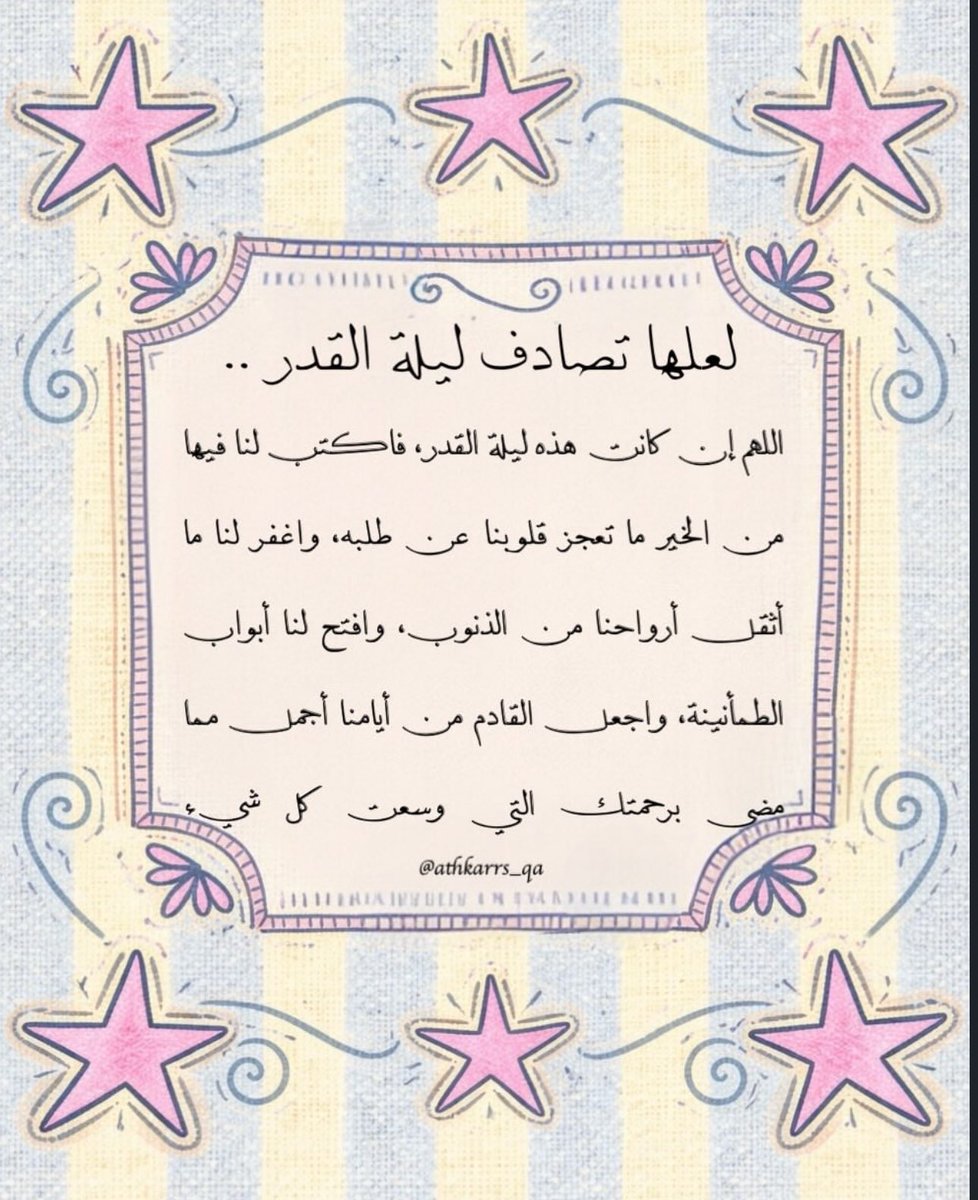 لعلها تصادف ليلة القدر ..
اللهم إن كانت هذه ليلة القدر، فاكتب لنا فيها
من الخير ما تعجز قلوبنا عن طلبه، واغفر لنا ما
أثقل أرواحنا من الذنوب، وافتح لنا أبواب
الطمأنينة، واجعل القادم من أيامنا أجمل مما
مضى برحمتك التي وسعت كل شيء
@athkarrs_qa